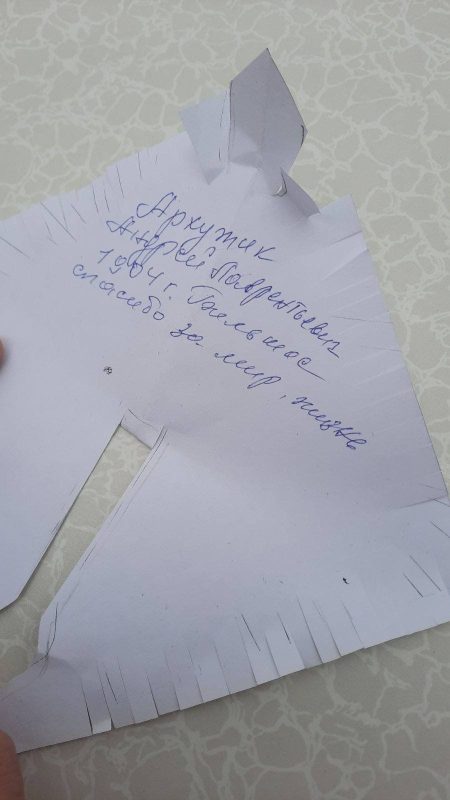 Архутик
Андрей Лаврентьевич
1904 г. Большое
спасибо за мир, жизнь